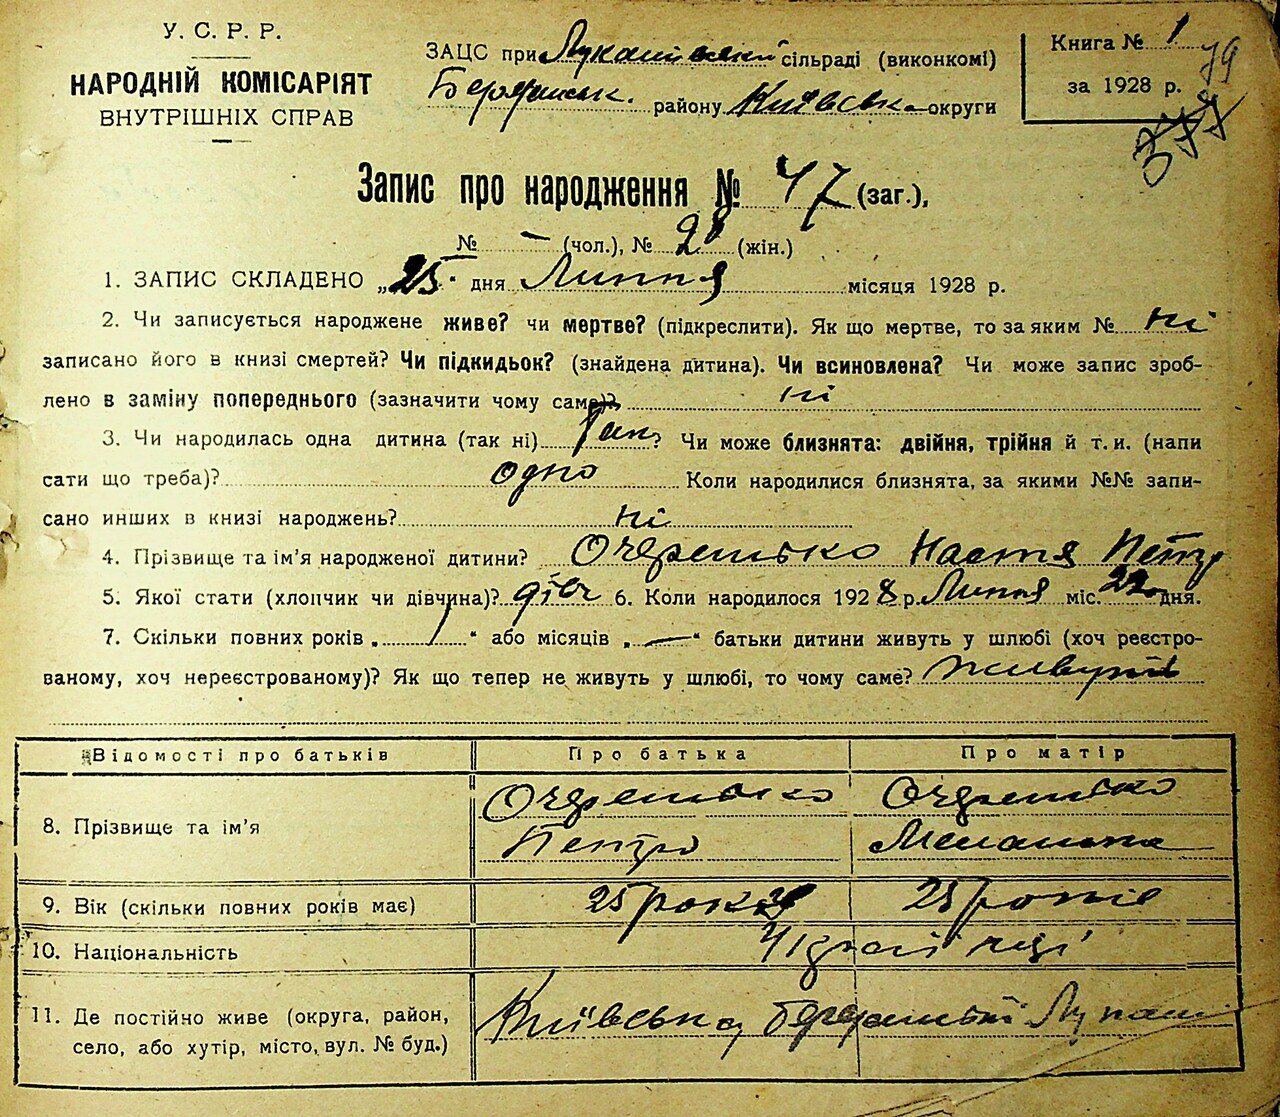 У. С. Р. Р.
НАРОДНІЙ КОМІСАРІЯТ
ВНУТРІШНІХ СПРАВ
ЗАЦС при Лукашівській сільраді (виконкомі)
Березанськ. району Київська округи
Книга № 1
за 1928 р.
79
377
Запис про народження № 47 (заг.),
№ — (чол.), № 28 (жін.)
1. ЗАПИС СКЛАДЕНО „25" дня Липня місяця 1928 р.
2. Чи записується народжене живе? чи мертве? (підкреслити). Як що мертве, то за яким № ні
записано його в книзі смертей? Чи підкидьок? (знайдена дитина). Чи всиновлена? Чи може запис зроб-
лено в заміну попереднього (зазначити чому саме)? ні
3. Чи народилась одна дитина (так ні) Так? Чи може близнята: двійня, трійня й т. и. (напи
сати що треба)? одно Коли народилися близнята, за якими №№ запи-
сано инших в книзі народжень? ні
4. Прізвище та ім'я народженої дитини? Очеретько Настя Петр
5. Якої стати (хлопчик чи дівчина)? дівч 6. Коли народилося 1928 р. Липня міс. 22 дня.
7. Скільки повних років „ / " або місяців „ — " батьки дитини живуть у шлюбі (хоч реєстро-
ваному, хоч нереєстрованому)? Як що тепер не живуть у шлюбі, то чому саме? живуть
Відомості про батьків Про батька Про матір
8. Прізвище та ім'я Очеретько Петро Очеретько Меланька
9. Вік (скільки повних років має) 25 рок 25 років
10. Національність
11. Де постійно живе (округа, район, село, або хутір, місто, вул. № буд.) Київська Березанський Лукаші